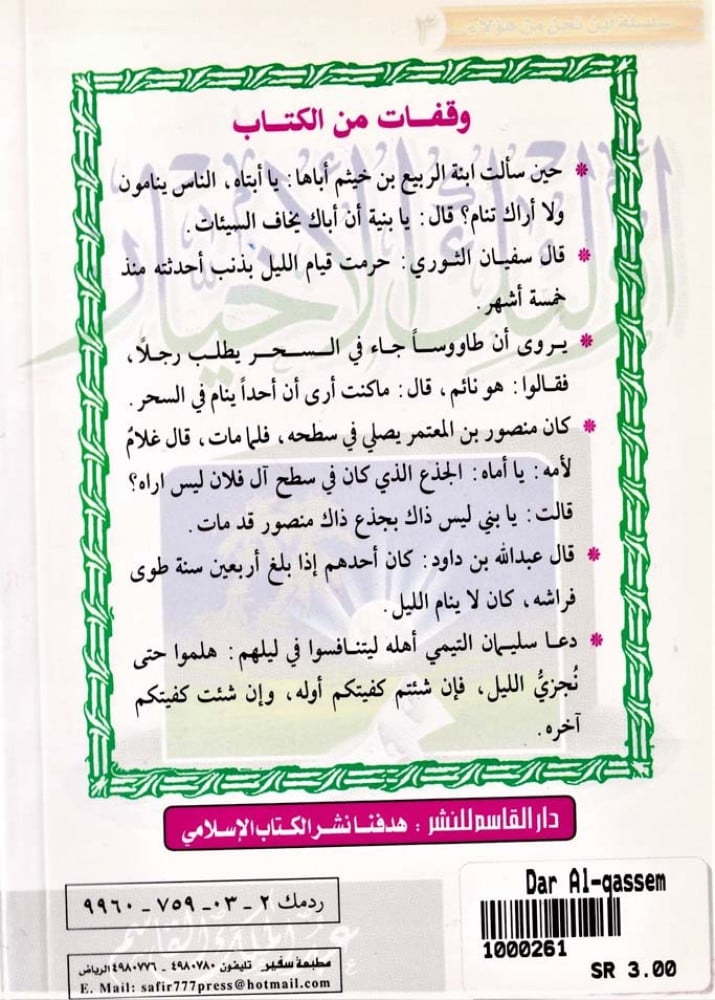 سلسلة أين نحن من هؤلاء ٣
وقفات من الكتاب
* حين سألت ابنة الربيع بن خيثم أباها: يا أبتاه، الناس ينامون
ولا أراك تنام؟ قال: يا بنية أن أباك يخاف السيئات.
* قال سفيان الثوري: حرمت قيام الليل بذنب أحدثته منذ
خمسة أشهر.
* يروى أن طاووساً جاء في السحر يطلب رجلاً،
فقالوا: هو نائم، قال: ماكنت أرى أن أحداً ينام في السحر.
* كان منصور بن المعتمر يصلي في سطحه، فلما مات، قال غلامٌ
لأمه: يا أماه: الجذع الذي كان في سطح آل فلان ليس اراه؟
قالت: يا بني ليس ذاك بجذع ذاك منصور قد مات.
* قال عبدالله بن داود: كان أحدهم إذا بلغ أربعين سنة طوى
فراشه، كان لا ينام الليل.
* دعا سليمان التيمي أهله ليتنافسوا في ليلهم: هلموا حتى
نُجزيُّ الليل، فإن شئتم كفيتكم أوله، وإن شئت كفيتكم
آخره.
أولئك الأخيار
دار القاسم للنشر : هدفنا نشر الكتاب الإسلامي
ردمك ٢ - ٠٣ - ٧٥٩ - ٩٩٦٠
عبد الملك القاسم
مطبعة سفير تليفون ٤٩٨٠٧٨٠ - ٤٩٨٠٧٧٦ الرياض
E. Mail: safir777press@hotmail.com
Dar Al-qassem
1000261
SR 3.00